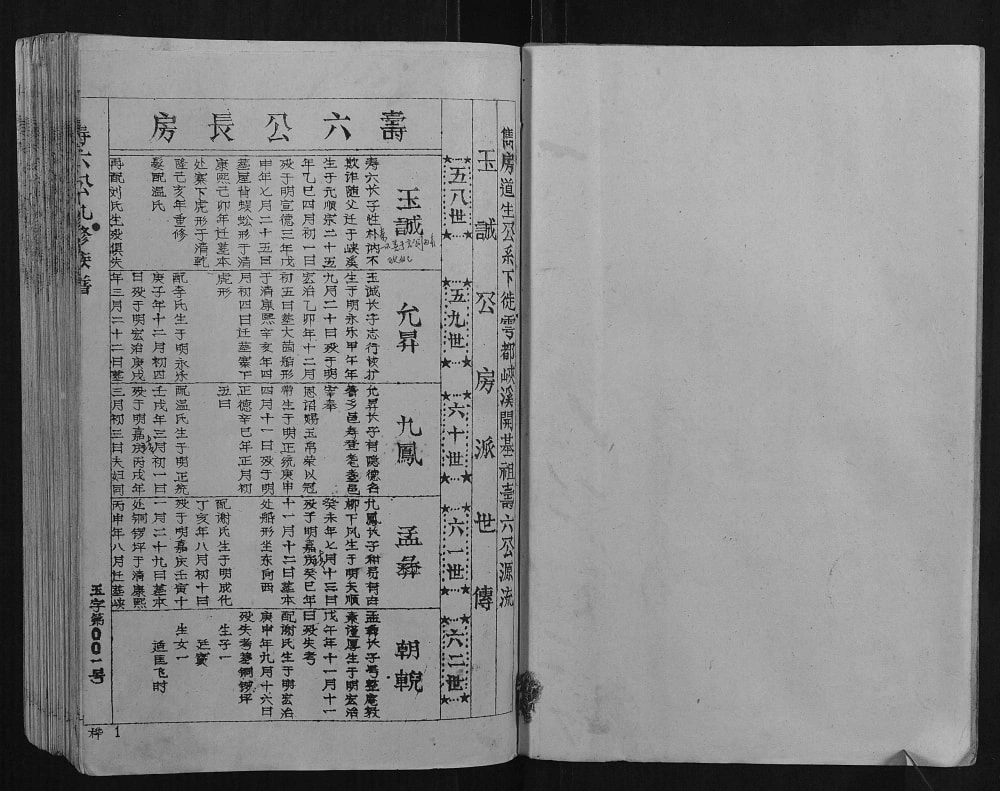 雋房道生公系下徙雩都峽溪開基祖壽六公源流
玉誠公房派世傳
五八世
五九世
六十世
六一世
六二世
壽六公長房
玉誠
寿六长子性朴讷不
欺诈随父迁于峡溪
生于元顺宗二十五
年乙巳四月初一日
殁于明宣德三年戊
申年七月二十五日
墓屋背蜈蚣形于清
康熙己卯年迁墓本
处寨下虎形于清乾
隆乙亥年重修
髮配温氏
再配刘氏生殁俱失
允昇
玉诚长子志行恢扩
生于明永乐甲午年
九月二十日殁于明
宏治乙卯年十二月
初五日墓大苗船形
于清康熙辛亥年四
月初四日迁墓寨下
虎形
配李氏生于明永乐
庚子年十二月初四
日殁于明宏治庚戌
年三月二十二日墓
九鳳
允昇长子有隐德名
著乡邑寿登耄耋邑
宰奉
恩诏赐玉帛荣以冠
带生于明正统庚申
四月十一日殁于明
正德辛巳年正月初
丑日
配温氏生于明正统
壬戌年三月初一日
殁于明嘉靖丙戌年
三月初三日夫妇同
孟彝
九凤长子和易有古
柳下风生于明天顺
癸未年七月十三日
殁于明嘉靖癸巳年
十一月十二日墓本
处船形坐东向西
配谢氏生于明成化
丁亥年八月初十日
殁于明嘉靖壬寅十
一月二十九日墓本
处铜锣坪于清康熙
丙申年八月迁墓峡
朝輗
孟彝长子号整庵敦
素谨厚生于明宏治
戊午年十一月十一
日殁失考
配谢氏生于明宏治
庚申年九月十六日
殁失考墓铜锣坪
生子一
廷寳
生女一
适匡飞时
寿六公九修族谱
玉字第001号
桦 1